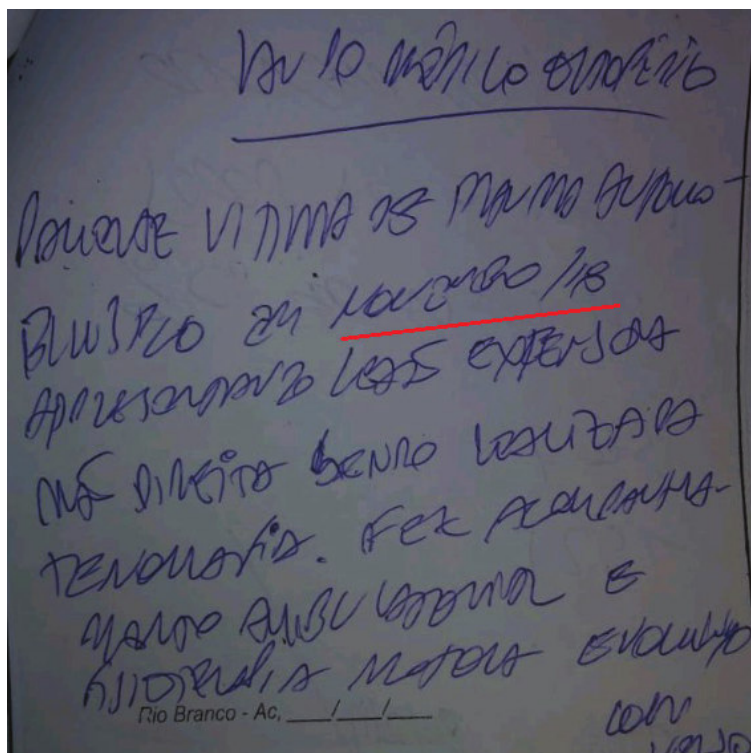 LAUDO MÉDICO ORTOPÉDICO
PACIENTE VITIMA DE TRAUMA AUTOMO-
BILISTICO EM NOVEMBRO/18
APRESENTANDO LESÃO EXTENSORA
MÃO DIREITA SENDO REALIZADA
TENORRAFIA. FEZ ACOMPANHA-
MENTO AMBULATORIAL E
FISIOTERAPIA MOTORA EVOLUINDO
Rio Branco - Ac, ___/___/___
COM